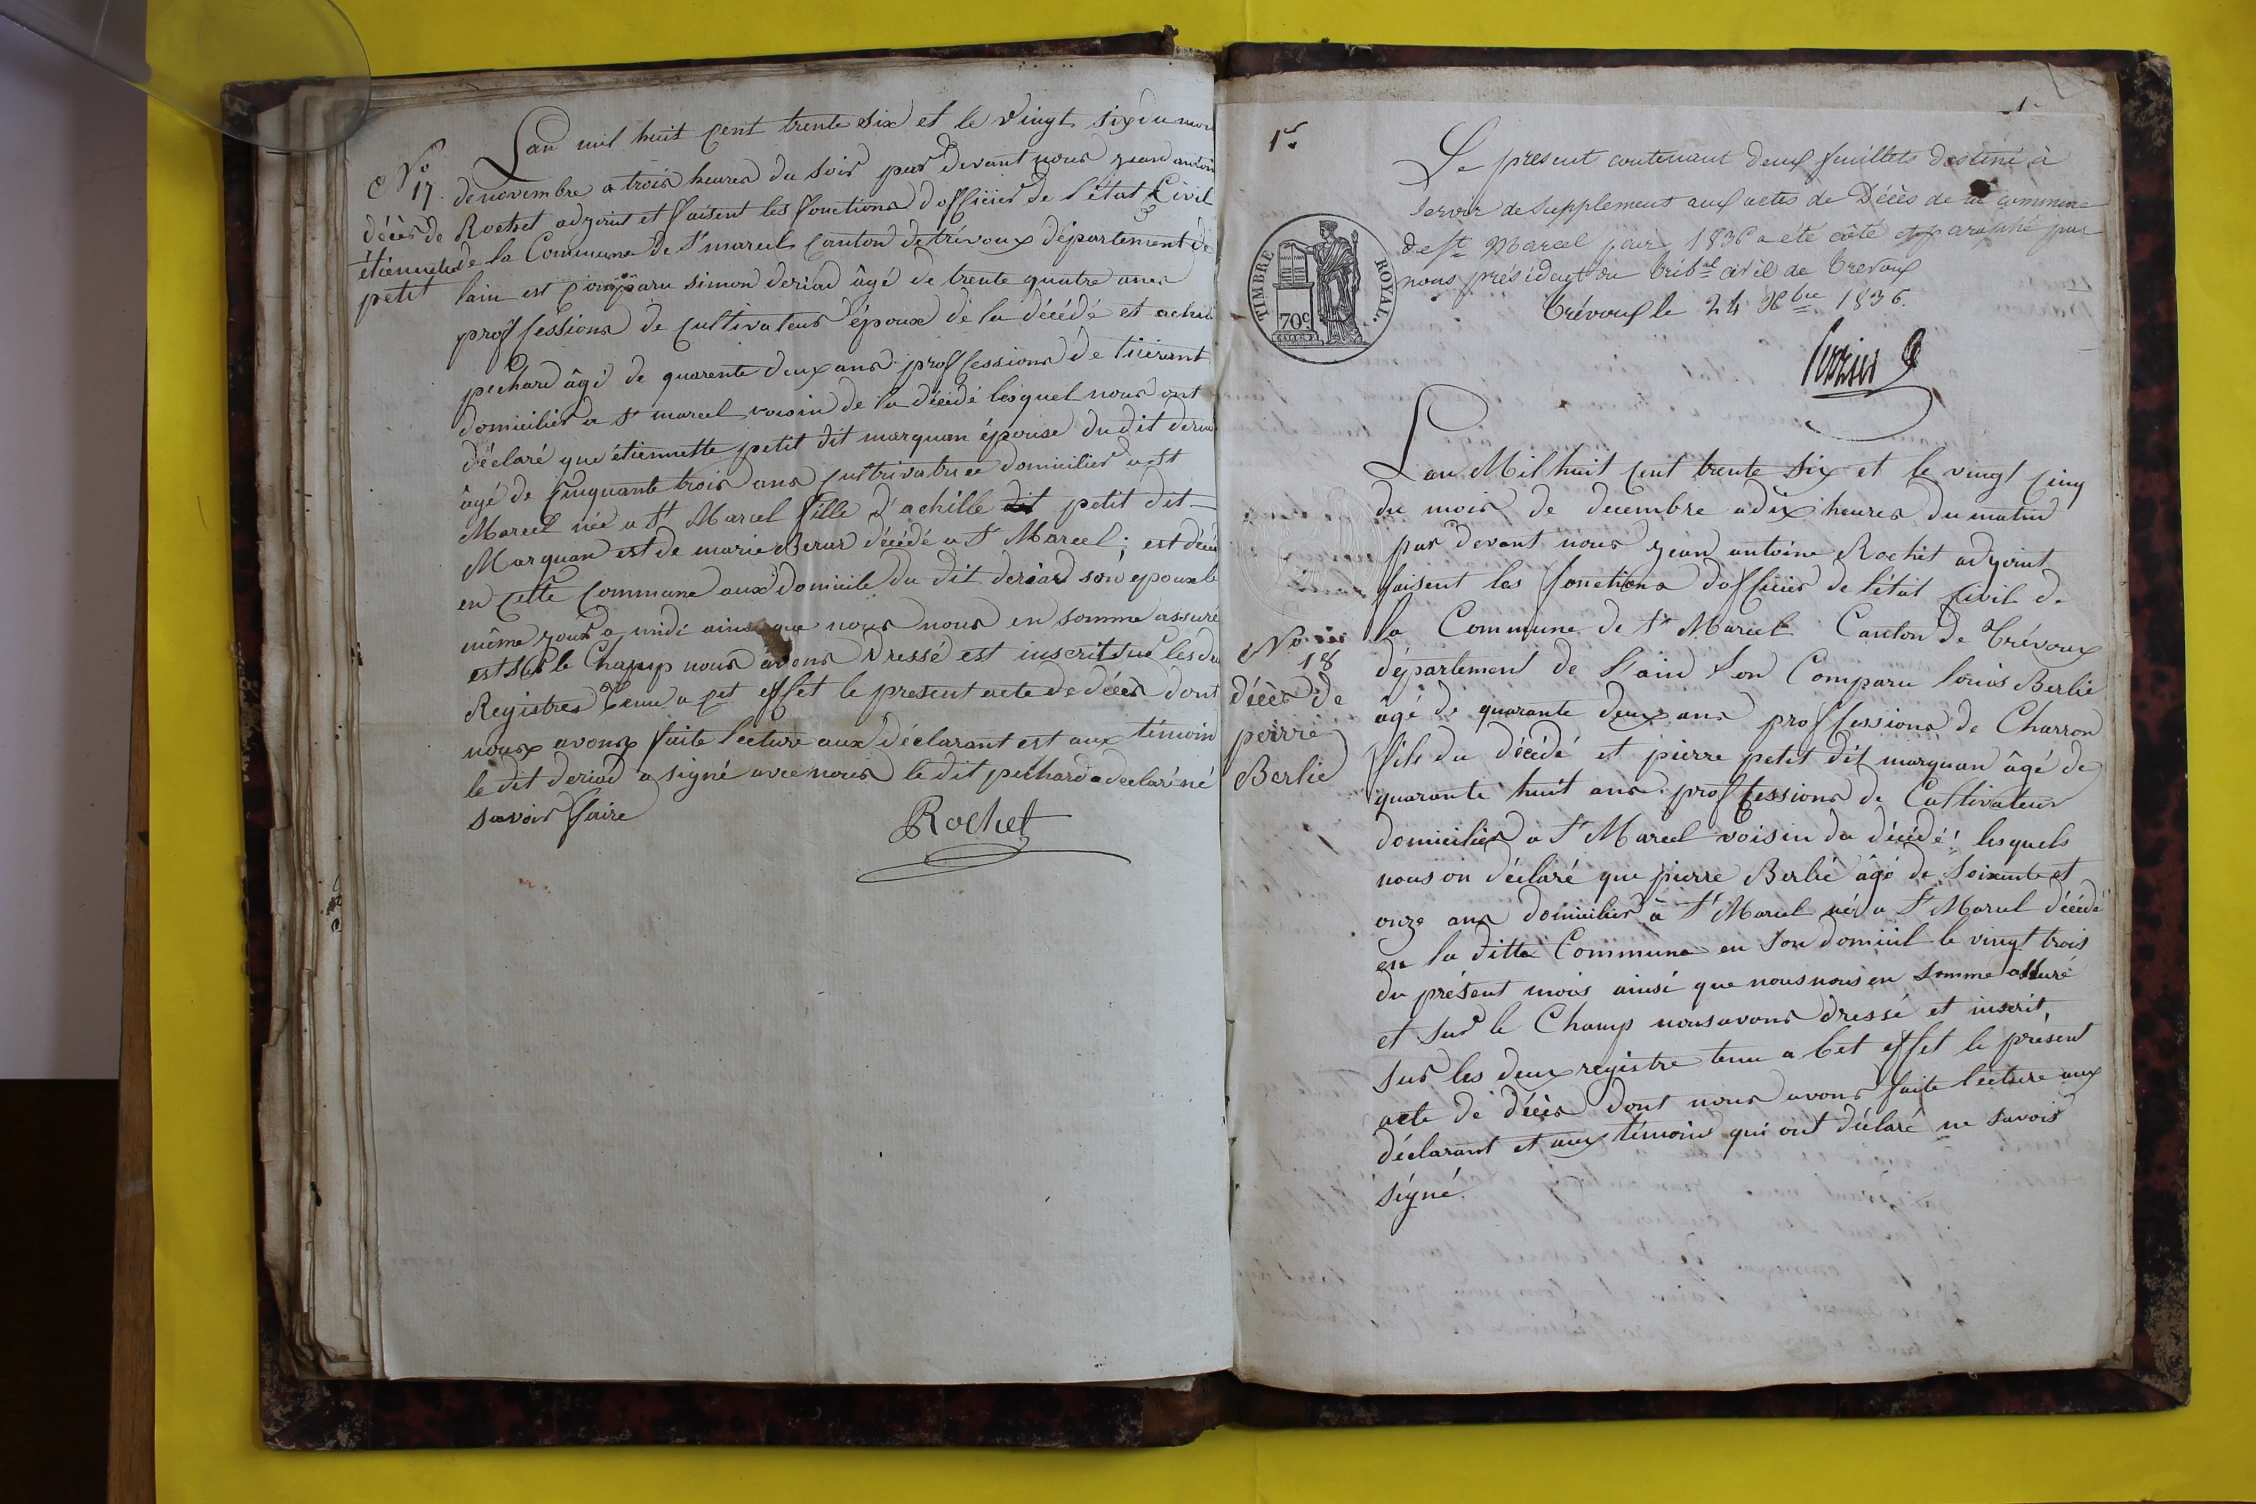 Lan mil huit Cent trente six et le vingt six du mois
No 17. de novembre a trois heures du soir par devant nous jean antoine
décès de Rochet adjoint et faisent les fonctions dofficier de l'état Civil
étiennette de la Commune de St marcel Canton de trévoux département de
petit lain est Comparu simon deriad âgé de trente quatre ans
proffessions de Cultivateur époux de la décédé et achile
pechard âgé de quarente deux ans proffessions de ticerant
domicilier a St marcel voisin de la décédé lesquel nous ont
déclaré que étiennette petit dit marquan épouse du dit deriad
âgé de Cinquante trois ans Cultrivatrice domicilier a St
Marcel née a St Marcel fille d'achille petit dit
Marquan est de marie Berar décédé a St Marcel; est décédé
en Cette Commune aux domicile du dit deriad son epoux le
même jour a midi ainsi que nous nous en somme assuré
est sur le Champ nous avons dressé est inscrit sur les deux
Registres tenu a Cet effet le present acte de décès dont
nous avons faite lecture aux déclarant est aux témoin
le dit deriad a signé avec nous le dit pechard a declaré né
savoir faire
Rochet
1.
1r.
Le présent contenant deux feuillets destiné à
servir de supplement aux actes de Décès de la commune
de St Marcel pour 1836 a été coté et paraphé par
nous président du tribal civil de Trevoux
Trévoux le 24 Xbre 1836.
TIMBRE ROYAL.
70c
Lan Mil huit Cent trente six et le vingt Cinq
du mois de decembre a dix heures du matin
par devant nous jean antoine Rochet adjoint
faisent les fonctions dofficier de l'état Civil de
la Commune de St Marcel Canton de Trévoux
No 18
département de l'ain son Comparu louis Berlié
décès de
âgé de quarante deux ans proffessions de Charron
peirre
fils du décédé et pierre petit dit marquan âgé de
Berlié
quarante huit ans proffessions de Cultivateur
domicilier a St Marcel voisin du décédé! lesquels
nous on déclaré que pierre Berlié âgé de Soixente et
onze ans domicilier à St Marcel né a St Marcel décédé
en la ditte Commune en son domicil le vingt trois
du présent mois ainsi que nous nous en somme assuré
et sur le Champ nous avons dressé et inscrit
sur les deux registre tenu a Cet effet le présent
acte de décès dont nous avons faite lecture aux
déclarant et aux témoins qui ont déclaré ne savoir
signé.